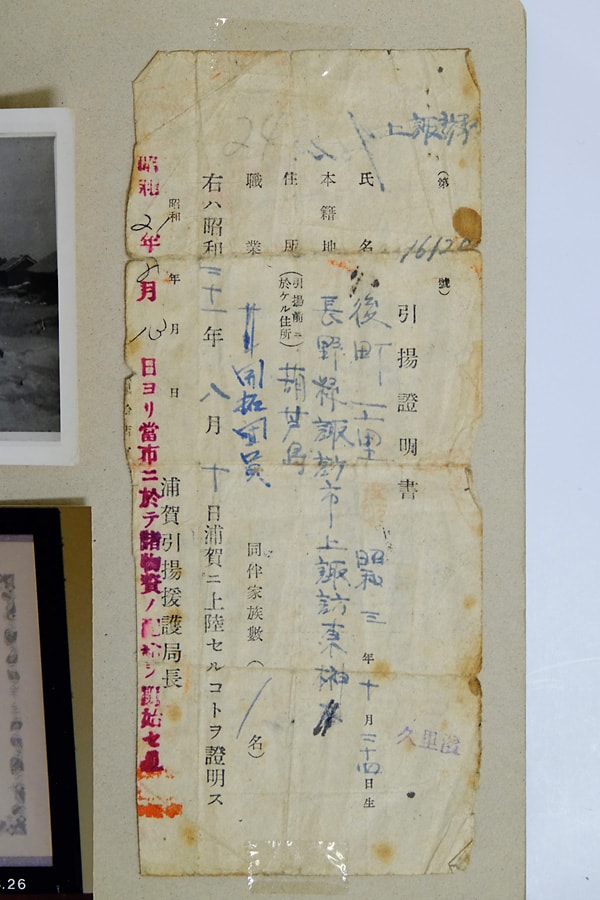 上諏訪
(第 16120 號)
引揚證明書
氏名 後町 昭和 三 年 十 月 二十四 日生
本籍地 長野縣諏訪市上諏訪東
住所 (引揚前ニ於ケル住所) 葫芦島
職業 開拓団員 同伴家族數 ( 1 名)
右ハ昭和二十一年八月十日浦賀ニ上陸セルコトヲ證明ス
昭和 年 月 日
浦賀引揚援護局長
昭和 21 年 8 月 13 日ヨリ當市ニ於テ諸物資ノ配給ヲ開始セ
.26